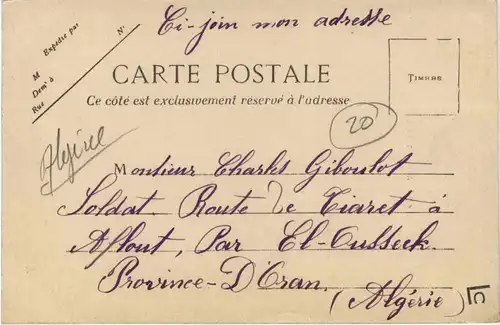 Ci-join mon adresse
Expédié par
N°
M
Dem<sup>t</sup> à
Rue
CARTE POSTALE
Ce côté est exclusivement réservé à l'adresse
TIMBRE
20
Algérie
Monsieur Charles Giboulot
Soldat. Route de Tiaret à
Aflout, Par El-Ousseck.
Province-D'Oran.
(Algérie)